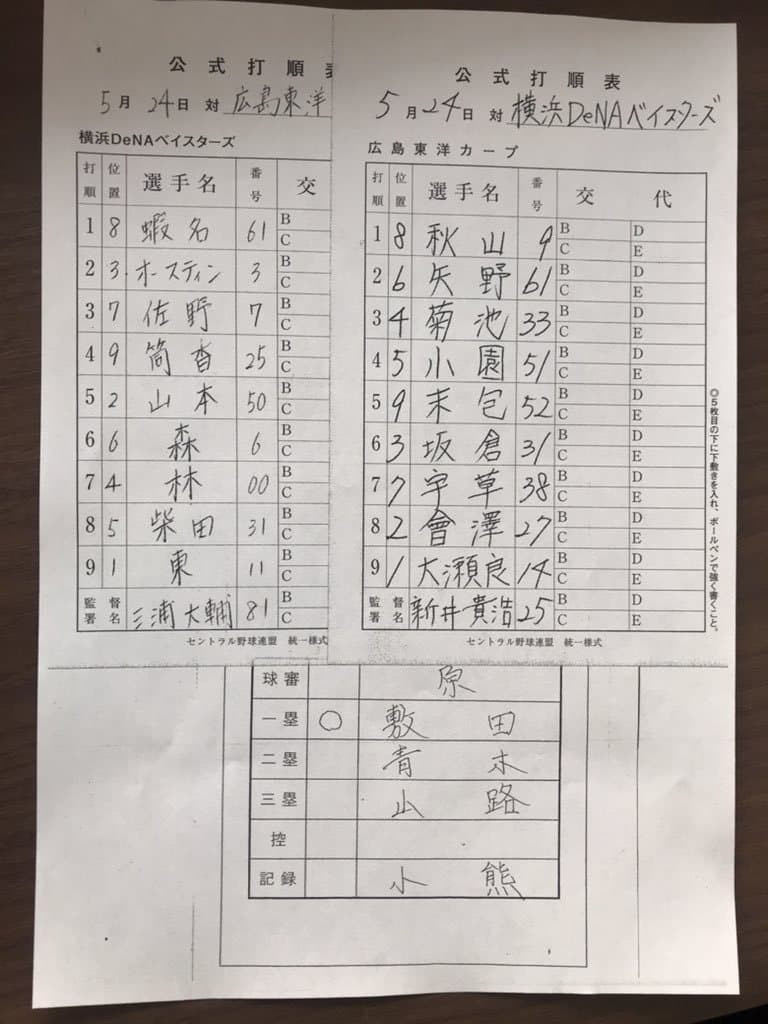 公式打順
5月24日 対 広島東洋
横浜DeNAベイスターズ
打順 位置 選手名 番号 交
1 8 蝦名 61 B C
2 3 オースティン 3 B C
3 7 佐野 7 B C
4 9 筒香 25 B C
5 2 山本 50 B C
6 6 森 6 B C
7 4 林 00 B C
8 5 柴田 31 B C
9 1 東 11 B C
監督署名 三浦大輔 81 B C
セントラル野球連盟 統一様式
公式打順表
5月24日 対 横浜DeNAベイスターズ
広島東洋カープ
打順 位置 選手名 番号 交代
1 8 秋山 9 B C D E
2 6 矢野 61 B C D E
3 4 菊池 33 B C D E
4 5 小園 51 B C D E
5 9 末包 52 B C D E
6 3 坂倉 31 B C D E
7 7 宇草 38 B C D E
8 2 會澤 27 B C D E
9 1 大瀬良 14 B C D E
監督署名 新井貴浩 25 B C D E
セントラル野球連盟 統一様式
◎5枚目の下に下敷きを入れ、ボールペンで強く書くこと。
球審 原
一塁 ○ 敷田
二塁 青木
三塁 山路
控
記録 小熊